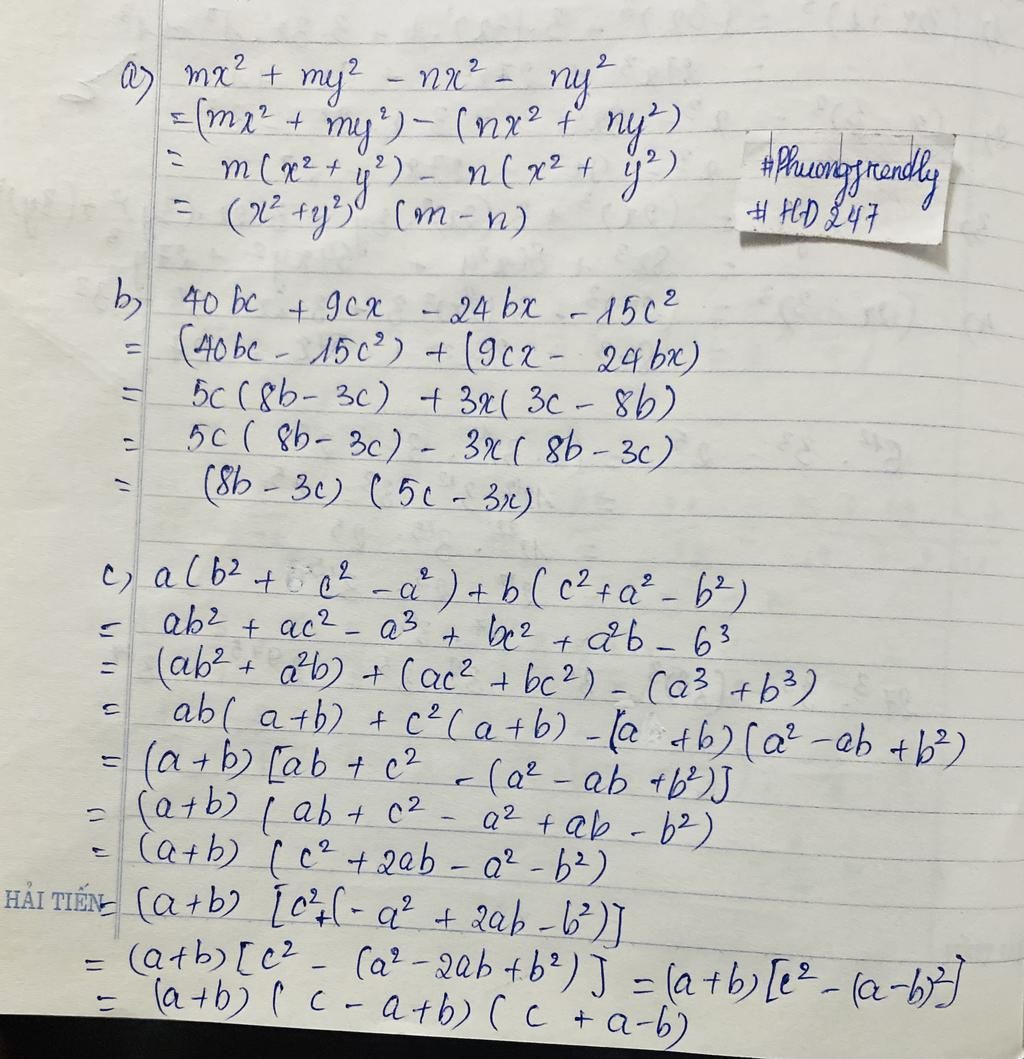 a) mx² + my² - nx² - ny²
= (mx² + my²) - (nx² + ny²)
= m(x² + y²) - n(x² + y²)
= (x² + y²) (m - n)
#Phuongfrendly
#HD247
b) 40bc + 9cx - 24bx - 15c²
= (40bc - 15c²) + (9cx - 24bx)
= 5c(8b - 3c) + 3x(3c - 8b)
= 5c(8b - 3c) - 3x(8b - 3c)
= (8b - 3c) (5c - 3x)
c) a(b² + c² - a²) + b(c² + a² - b²)
= ab² + ac² - a³ + bc² + a²b - b³
= (ab² + a²b) + (ac² + bc²) - (a³ + b³)
= ab(a+b) + c²(a+b) - (a + b)(a² - ab + b²)
= (a+b) [ab + c² - (a² - ab + b²)]
= (a+b) (ab + c² - a² + ab - b²)
= (a+b) (c² + 2ab - a² - b²)
HẢI TIẾN
= (a+b) [c² + (-a² + 2ab - b²)]
= (a+b) [c² - (a² - 2ab + b²)] = (a+b) [c² - (a-b)²]
= (a+b) (c - a + b) (c + a - b)